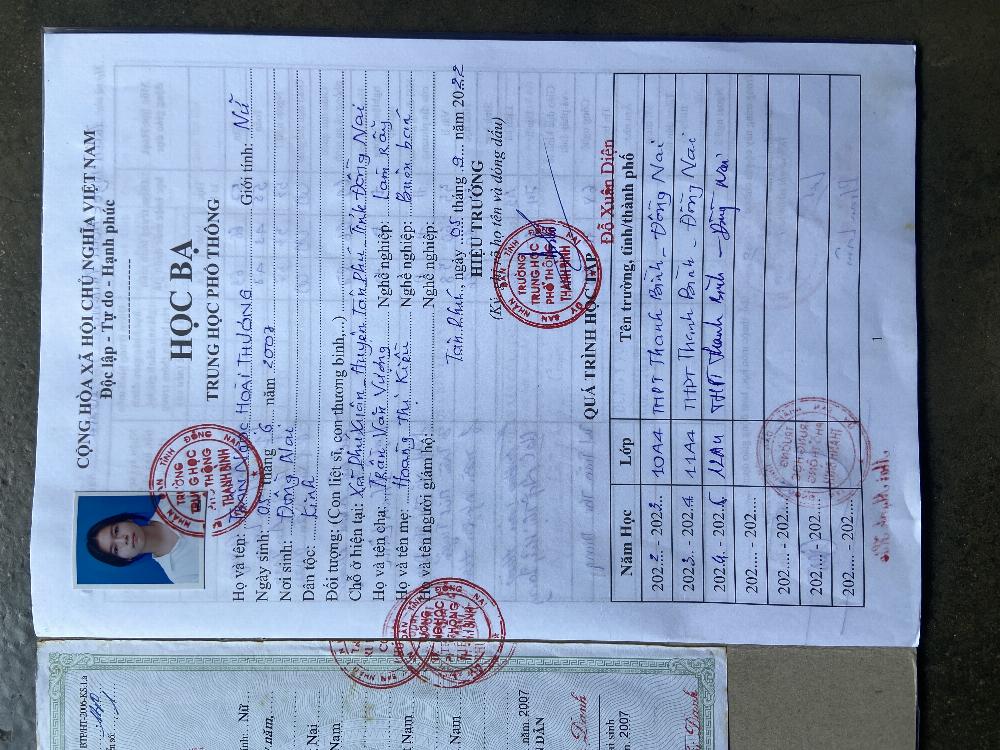 CỘNG HÒA XÃ HỘI CHỦ NGHĨA VIỆT NAM
Độc lập - Tự do - Hạnh phúc
HỌC BẠ
TRUNG HỌC PHỔ THÔNG
Họ và tên: TRẦN NGỌC HOÀI THƯƠNG Giới tính: Nữ
Ngày sinh: tháng 6 năm 2007
Nơi sinh: Đồng Nai
Dân tộc: Kinh
Đối tượng: (Con liệt sĩ, con thương binh,...)
Chỗ ở hiện tại: Xã Phú Xuân, Huyện Tân Phú, Tỉnh Đồng Nai
Họ và tên cha: Trần Văn Vương Nghề nghiệp: Làm rẫy
Họ và tên mẹ: Hoàng Thị Kiều Nghề nghiệp: Buôn bán
Họ và tên người giám hộ: Nghề nghiệp:
Tân Phú, ngày 05 tháng 9 năm 2022
HIỆU TRƯỞNG
(Ký, ghi rõ họ tên và đóng dấu)
ỦY BAN NHÂN DÂN TỈNH ĐỒNG NAI
TRƯỜNG
TRUNG HỌC
PHỔ THÔNG
THANH BÌNH
Đỗ Xuân Diện
QUÁ TRÌNH HỌC TẬP
Năm Học Lớp Tên trường, tỉnh/thành phố
2022 - 2023 10A4 THPT Thanh Bình - Đồng Nai
2023 - 2024 11A4 THPT Thanh Bình - Đồng Nai
2024 - 2025 12A4 THPT Thanh Bình - Đồng Nai
202.... - 202....
202.... - 202....
202.... - 202....
202.... - 202....
1
BTP/HT-2006-KS.1a
Nữ
năm
Nai
Nam
Nam
năm 2007
DÂN
Danh
sinh
2007